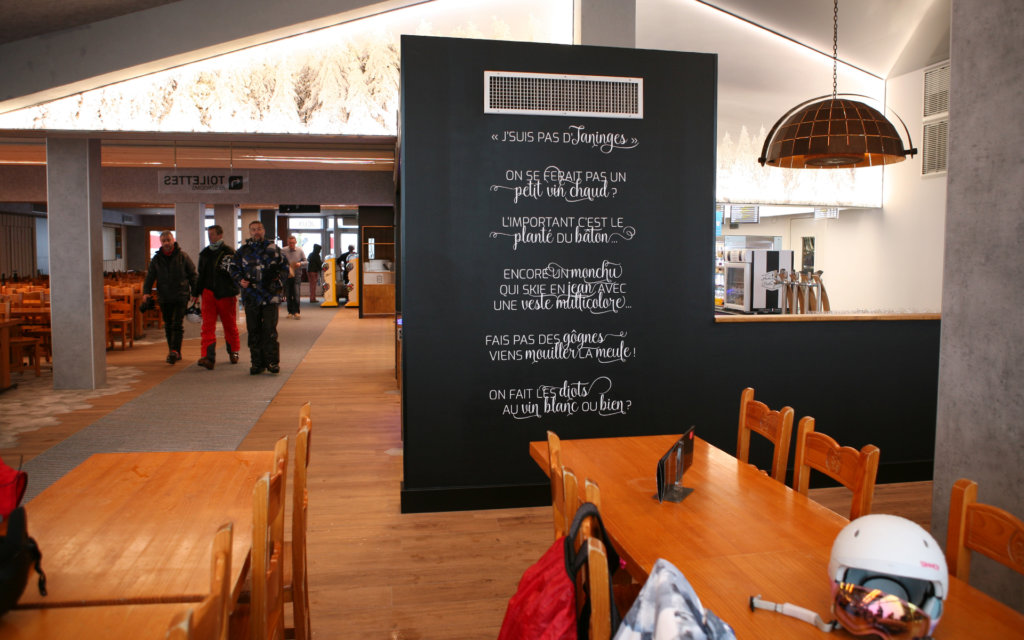 TOILETTES
« J'SUIS PAS D'Taninges »
ON SE FERAIT PAS UN
petit vin chaud ?
L'IMPORTANT C'EST LE
planté DU bâton...
ENCORE UN monchu
QUI SKIE EN jean AVEC
UNE veste multicolore...
FAIS PAS DES gôgnes
VIENS mouiller LA meule !
ON FAIT LES diots
AU vin blanc OU bien ?